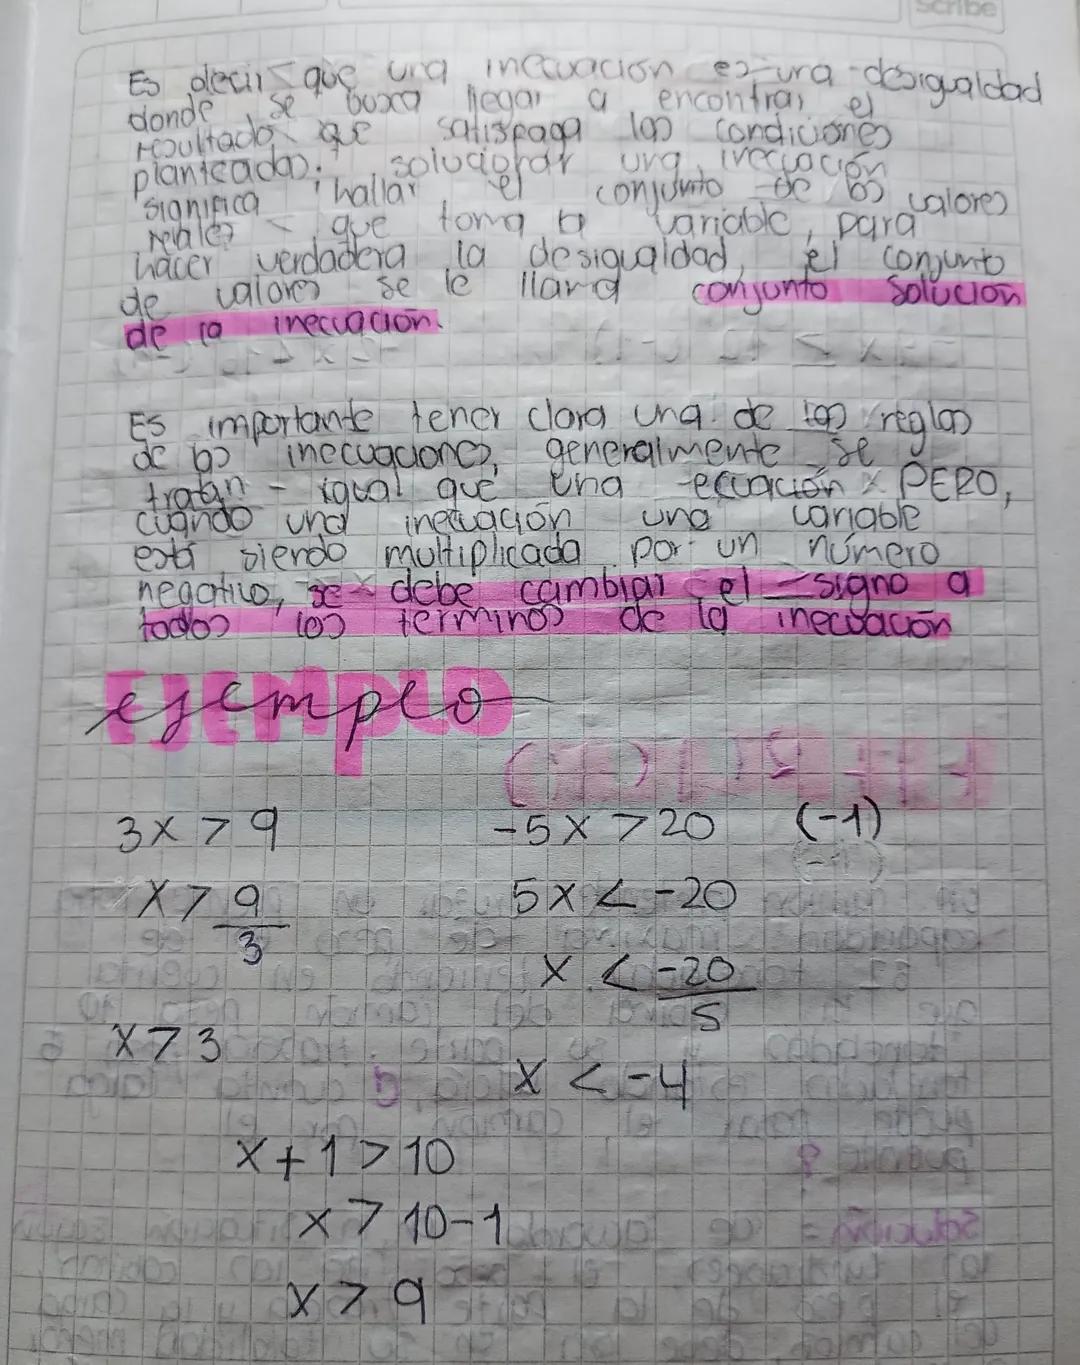 Scribe
Es decir que una inecuacion es una desigualdad
donde se busca llegar a encontrar el
resultado que satisfaga las condiciones
planteadas; solucionar una inecuación
significa hallar el conjunto de los valores
reales que toma la variable, para
hacer verdadera la desigualdad, el conjunto
de valores se le llama conjunto solución
de la inecuación.
Es importante tener clara una de las reglas
de las inecuaciones, generalmente se
tratan igual que una ecuación PERO,
cuando una inecuación una variable
está siendo multiplicada por un número
negativo, se debe cambiar el signo a
todos los terminos de la inecuación
ejemplo
3x > 9
x > 9/3
x > 3
-5x > 20 (-1)
5x < -20
x < -20/5
x < -4
x + 1 > 10
x > 10-1
x > 9